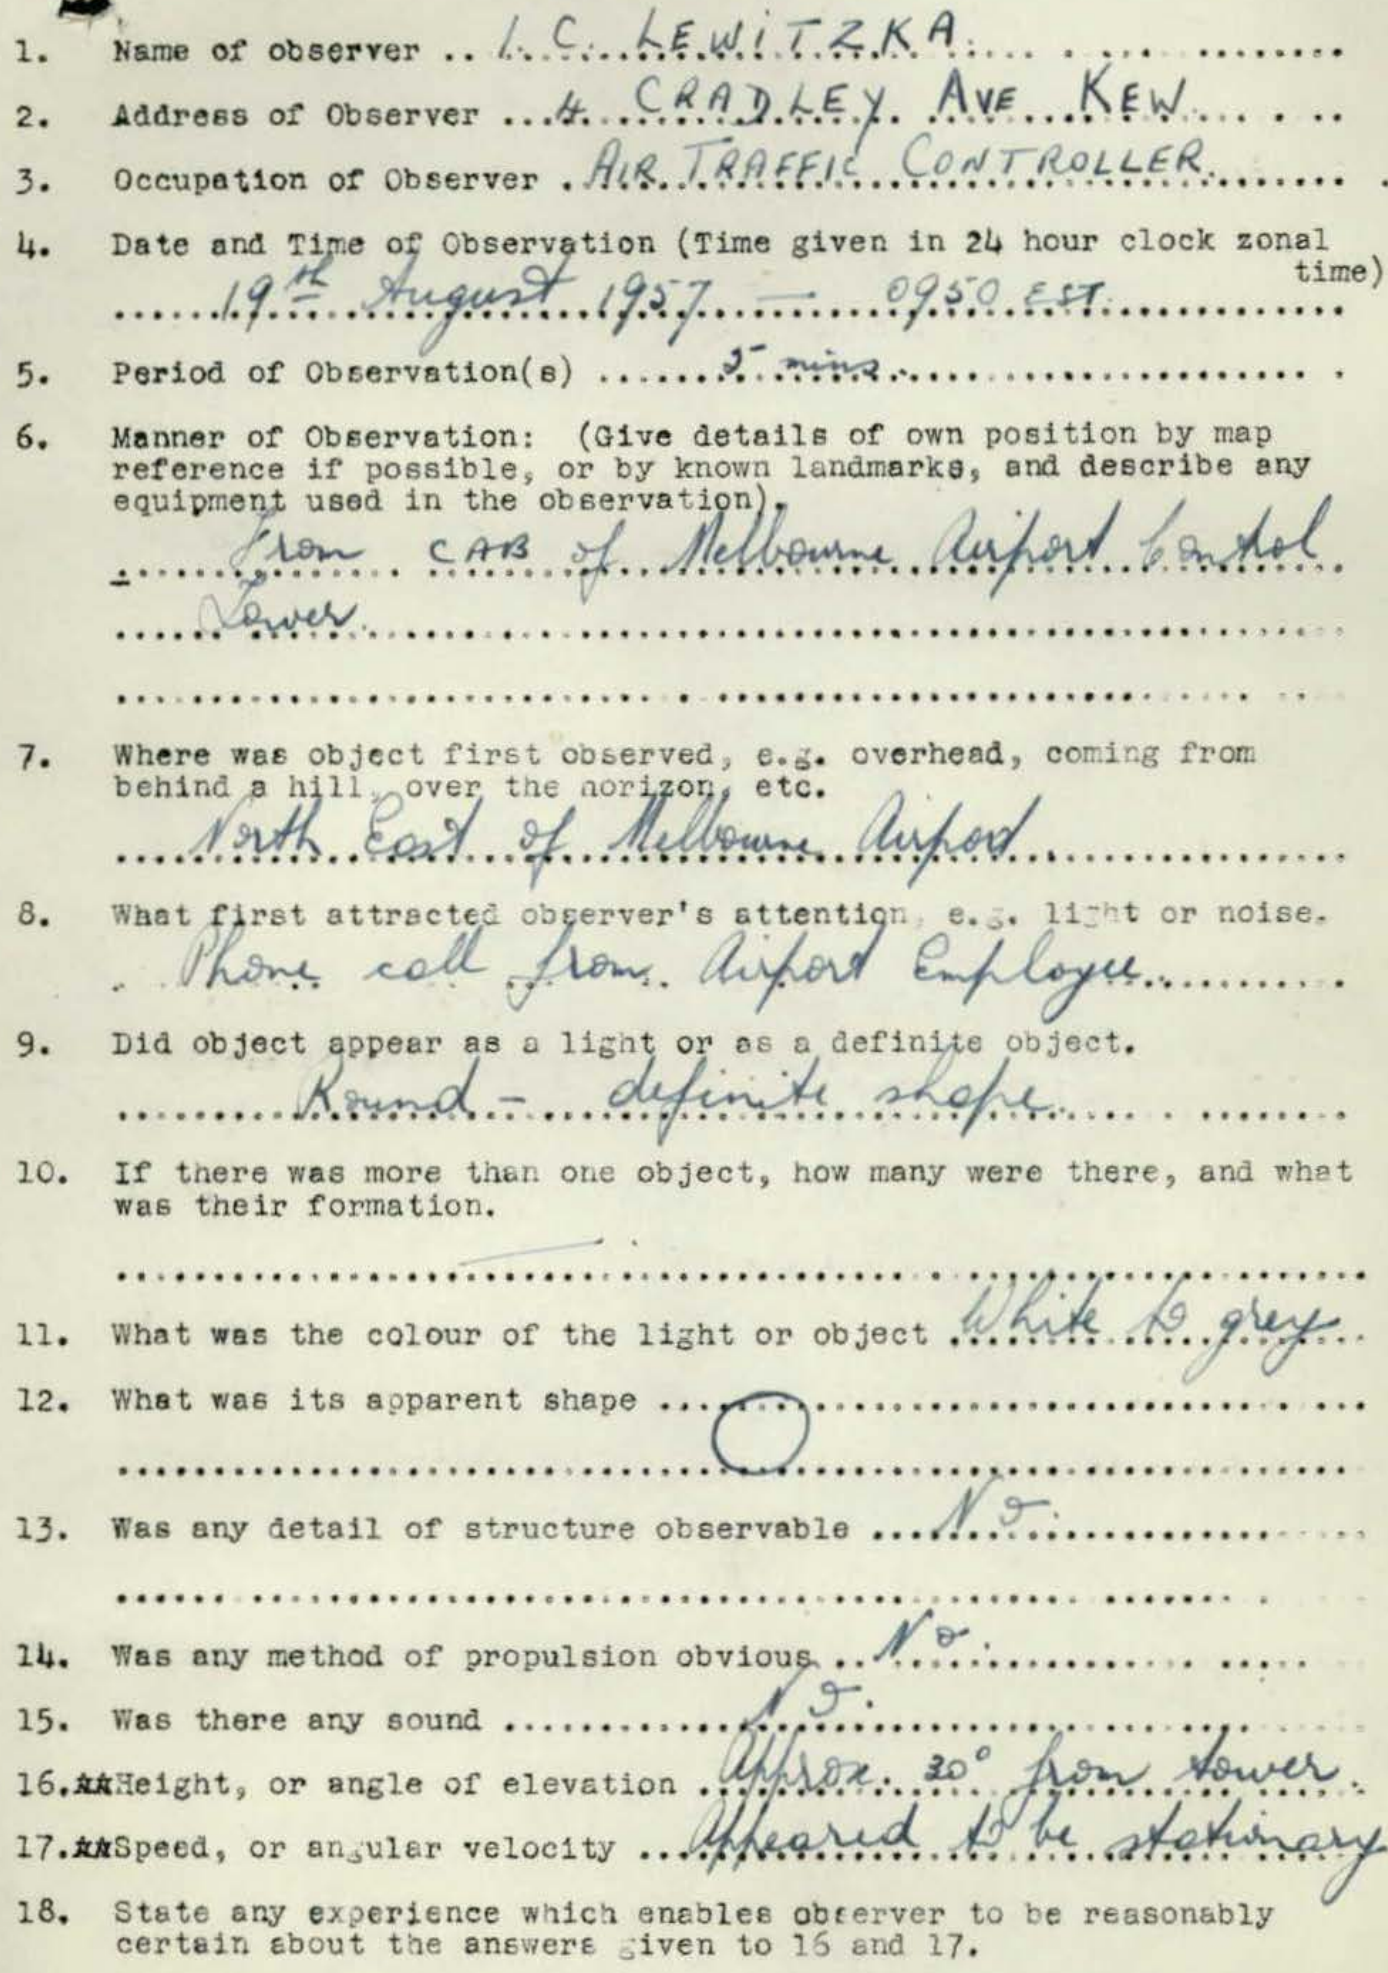 1. Name of observer .. I. C. LEWITZKA
2. Address of Observer ... 4. CRADLEY AVE KEW.
3. Occupation of Observer . AIR TRAFFIC CONTROLLER.
4. Date and Time of Observation (Time given in 24 hour clock zonal
time)
19th August 1957 — 0950 EST.
5. Period of Observation(s) ...... 5 mins.
6. Manner of Observation: (Give details of own position by map
reference if possible, or by known landmarks, and describe any
equipment used in the observation).
From CAB of Melbourne Airport Control
Tower.
7. Where was object first observed, e.g. overhead, coming from
behind a hill, over the horizon, etc.
North East of Melbourne Airport
8. What first attracted observer's attention, e.g. light or noise.
Phone call from Airport Employee
9. Did object appear as a light or as a definite object.
Round - definite shape
10. If there was more than one object, how many were there, and what
was their formation.
11. What was the colour of the light or object White to grey
12. What was its apparent shape ...
13. Was any detail of structure observable .... No.
14. Was any method of propulsion obvious .. No.
15. Was there any sound ........... No.
16.**Height, or angle of elevation .. Approx. 30° from tower.
17.**Speed, or angular velocity ... Appeared to be stationary
18. State any experience which enables observer to be reasonably
certain about the answers given to 16 and 17.